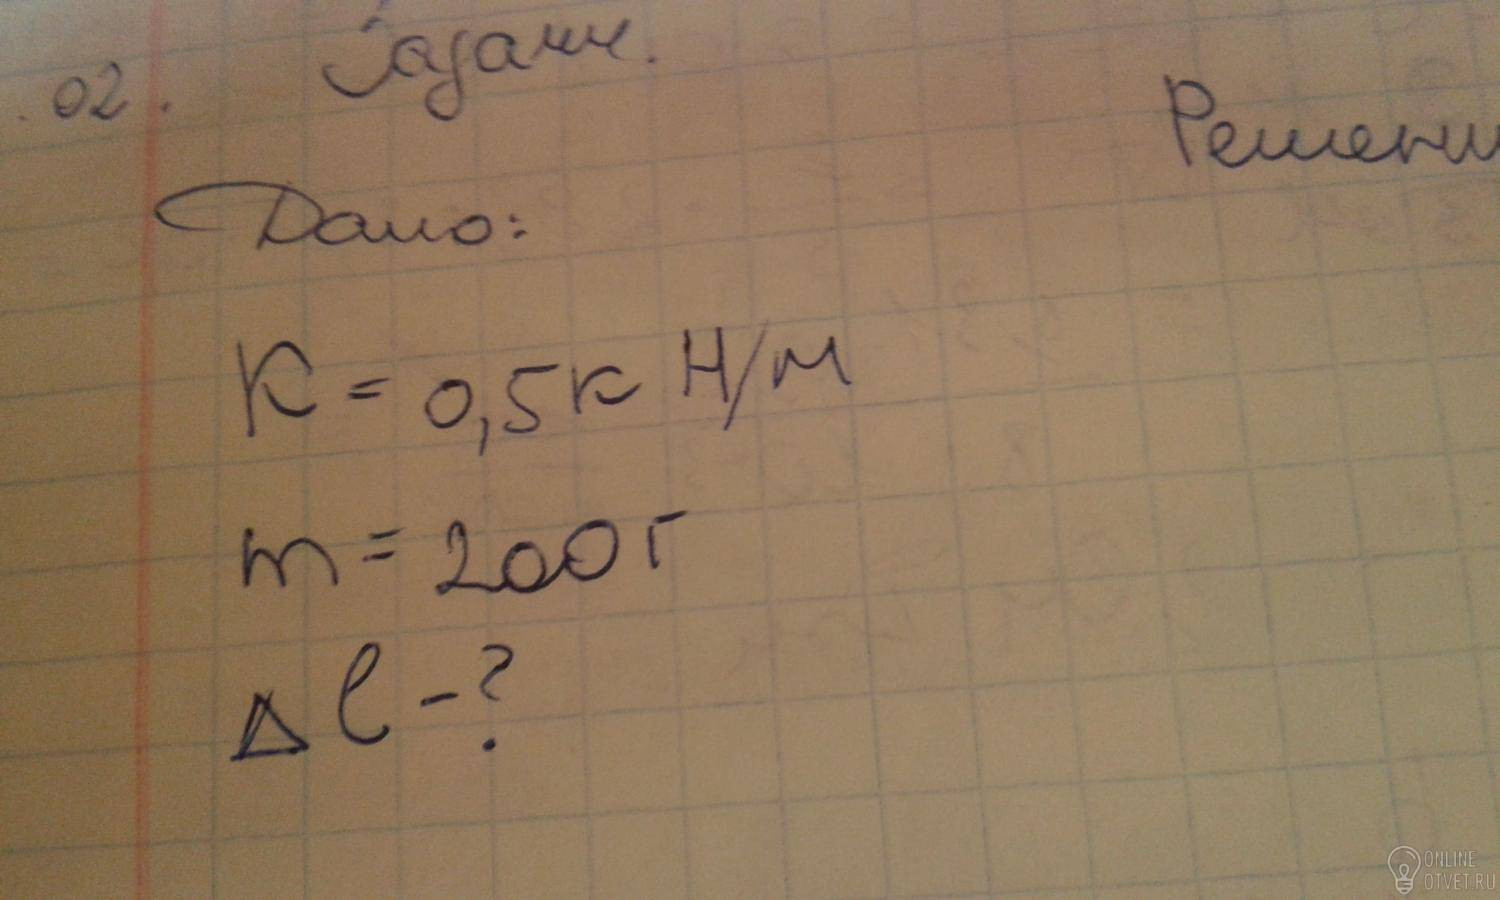 .02. Задачи.
Решени
Дано:
K = 0,5к Н/м
m = 200г
Δl - ?
ONLINE
OTVET.RU